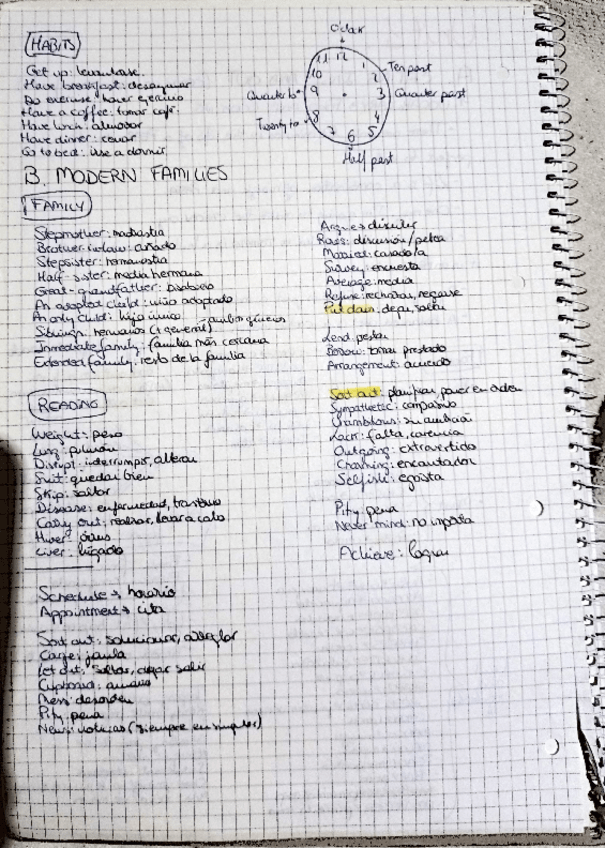 HABITS
Get up: levantarse.
Have breakfast: desayunar
Do exercise: hacer ejercicio
Have a coffee: tomar café
Have lunch: almorzar
Have dinner: cenar
Go to bed: irse a dormir
O'clock
Ten past
Quarter past
Half past
Twenty to
Quarter to
11 12 1
10 2
9 3
8 4
7 6 5
B. MODERN FAMILIES
FAMILY
Stepmother: madrastra
Brother in law: cuñado
Stepsister: hermanastra
Half-sister: media hermana
Great-grandfather: bisabuelo
An adopted child: niño adoptado
An only child: hijo único
Siblings: hermanos (+ general) ambos géneros
Immediate family: familia más cercana
Extended family: resto de la familia
READING
Weight: peso
Lung: pulmón
Disrupt: interrumpir, alterar
Suit: quedar bien
Skip: saltar
Disease: enfermedad, trastorno
Carry out: realizar, llevar a cabo
Liver: hígado
Schedule → horario
Appointment → cita
Sort out: solucionar, arreglar
Cage: jaula
Let out: soltar, dejar salir
Cupboard: armario
Mess: desorden
Pity: pena
News: noticias (siempre en singular)
Argue → discutir
Rows: discusión/pelea
Married: casado/a
Survey: encuesta
Average: media
Refuse: rechazar, negarse
Put down: dejar, soltar
Lend: prestar
Borrow: tomar prestado
Arrangement: acuerdo
Sort out: planificar, poner en orden
Sympathetic: compasivo
Unambitious: sin ambición
Lack: falta, carencia
Outgoing: extravertido
Charming: encantador
Selfish: egoísta
Pity: pena
Never mind: no importa
Achieve: lograr